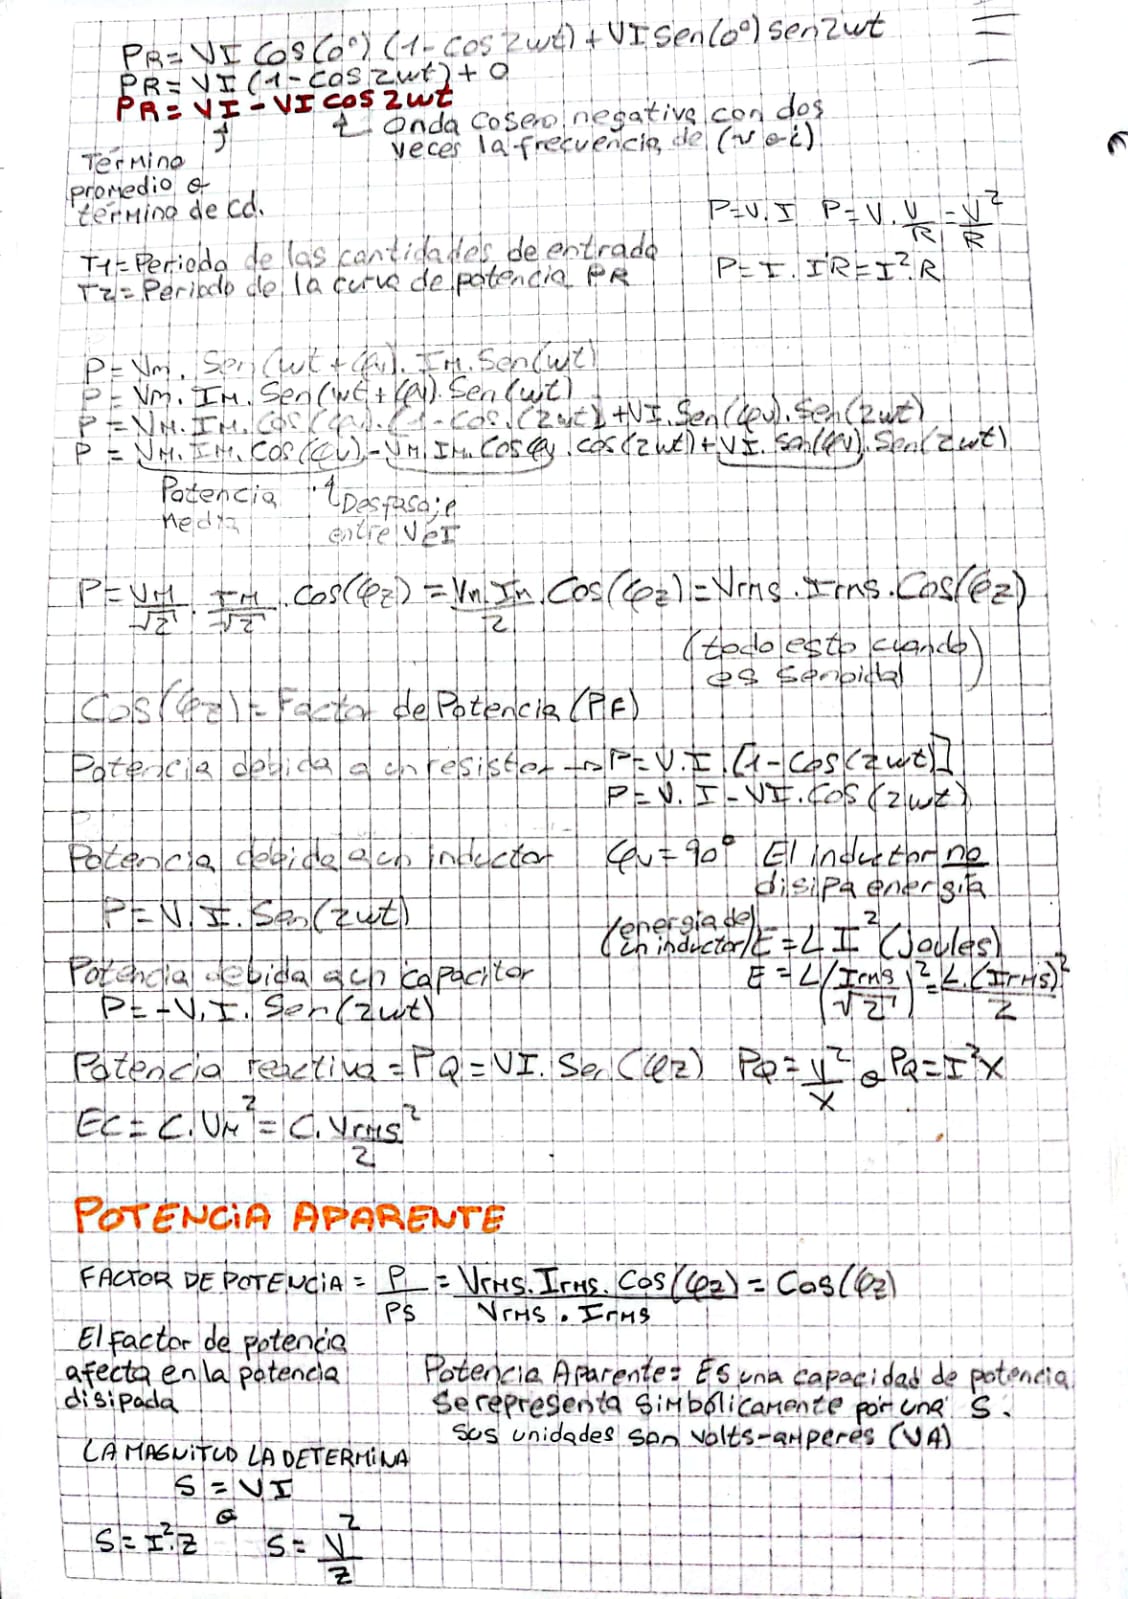 PR = VI Cos(0°) (1 - cos 2wt) + VI sen(0°) sen 2wt
PR = VI (1 - cos 2wt) + 0
PR = VI - VI cos 2wt
Onda coseno negativa con dos
veces la frecuencia de (v o i)
Término
promedio o
término de cd.
P = V.I P = V. V/R = V²/R
T1 = Periodo de las cantidades de entrada
T2 = Periodo de la curva de potencia PR
P = I. IR = I².R
P = Vm. Sen(wt + φv). IM. Sen(wt)
P = Vm. IM. Sen(wt + φv). Sen(wt)
P = VM. IM. Cos(φv). (1 - Cos. (2wt)) + VI. Sen(φv). Sen(2wt)
P = VM. IM. Cos(φv) - VM. IM. Cos φv. cos(2wt) + VI. sen(φv). Sen(2wt)
Potencia
Media
Desfasaje
entre V e I
P = VM/√2 . IM/√2 . cos(φz) = Vm.Im/2 . Cos(φz) = Vrms. Irms. Cos(φz)
(todo esto cuando
es senoidal)
Cos(φz) = Factor de Potencia (PF)
Potencia debida a un resistor → P = V.I. [1 - Cos(2wt)]
P = V. I - VI. Cos (2wt)
Potencia debida a un inductor φv = 90° El inductor no
disipa energía
P = V. I. Sen(2wt)
(energia de
un inductor) E = L I² (Joules)
Potencia debida a un capacitor
E = L (Irms/√2)² = L.(Irms)²/2
P = -V. I. Sen(2wt)
Potencia reactiva = PQ = VI. Sen(φz) PQ = V²/X o PQ = I²X
EC = C. VM² = C. Vrms²/2
POTENCIA APARENTE
FACTOR DE POTENCIA = P/PS = Vrms. Irms. Cos(φz)/Vrms . Irms = Cos(φz)
El factor de potencia
afecta en la potencia
disipada
Potencia Aparente: ES una capacidad de potencia
Se representa simbólicamente por una S.
sus unidades son volts-amperes (VA)
LA MAGNITUD LA DETERMINA
S = VI
o
S = I².Z S = V²/Z